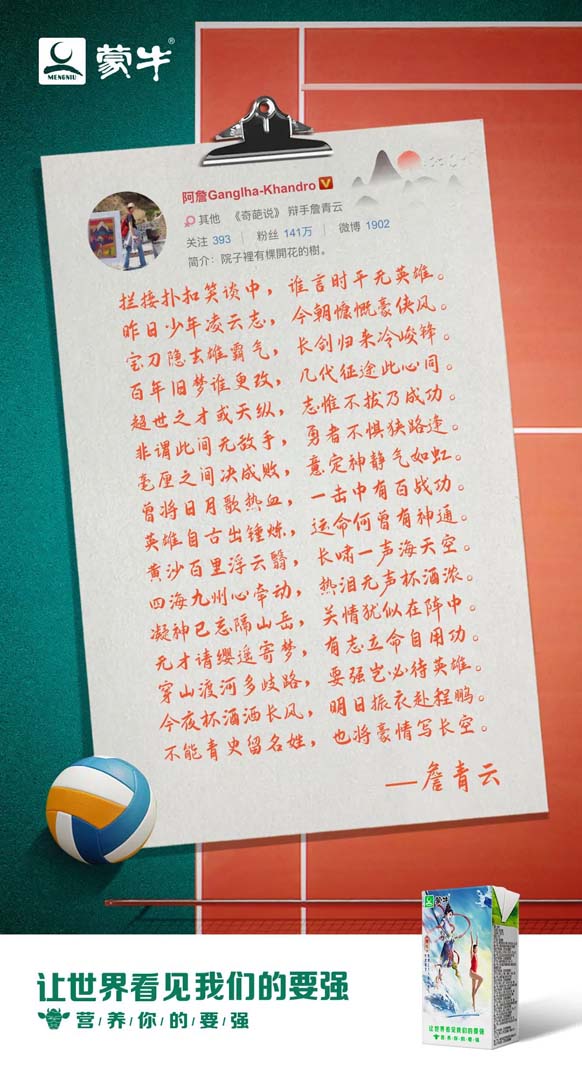 MENGNIU
蒙牛®
阿詹Ganglha-Khandro
其他 《奇葩说》 辩手詹青云
关注 393 | 粉丝 141万 | 微博 1902
简介：院子裡有棵開花的樹。
拦接扑扣笑谈中，谁言时平无英雄。
昨日少年凌云志，今朝慷慨豪侠风。
宝刀隐去雄霸气，长剑归来冷峻锋。
百年旧梦谁更改，几代征途此心同。
超世之才或天纵，志惟不拔乃成功。
非谓此间无敌手，勇者不惧狭路逢。
毫厘之间决成败，意定神静气如虹。
曾将日月歌热血，一击中有百战功。
英雄自古出锤炼，运命何曾有神通。
黄沙百里浮云翳，长啸一声海天空。
四海九州心牵动，热泪无声杯酒浓。
凝神已忘隔山岳，关情犹似在阵中。
无才请缨遥寄梦，有志立命自用功。
穿山渡河多歧路，要强岂必待英雄。
今夜杯酒洒长风，明日振衣赴程鹏。
不能青史留名姓，也将豪情写长空。
——詹青云
蒙牛
让世界看见我们的要强
营养你的要强
让世界看见我们的要强
营/养/你/的/要/强